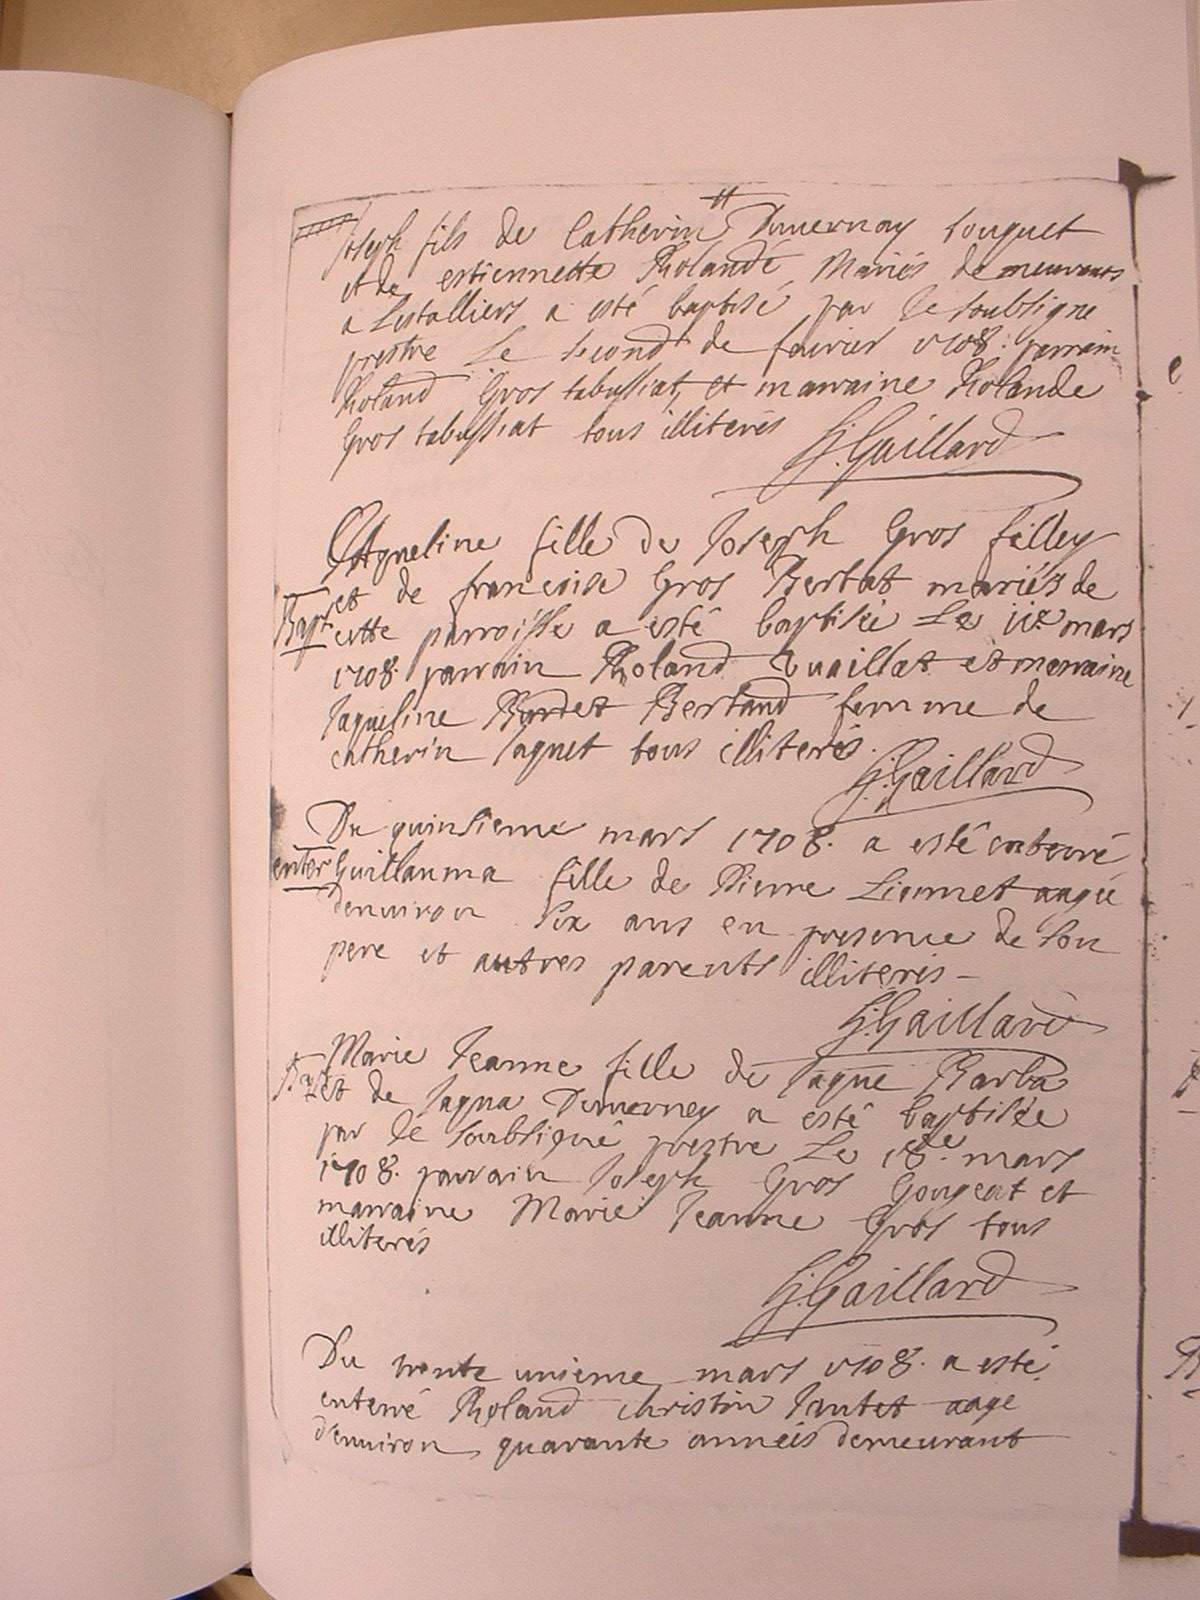 Joseph fils de Catherin Dumernay touquet
et de estiennette Rolande Mariés demeurants
a Lestalliers a esté baptisé par le soubsigne
prestre Le second de feuvier 1708. parrain
Roland Gros tabussiat et marraine Rolande
Gros tabussiat tous illiterés
G. Gaillard
Jaqueline fille de Joseph Gros filley
et de francoise Gros Bertat mariés de
Bapt cette parroisse a esté baptisée Le iie mars
1708. parrain Roland Vuaillat et marraine
Jaqueline Bertand femme de
Catherin Jaquet tous illiterés.
G. Gaillard
Du quinsieme mars 1708. a esté enterré
enter Guillauma fille de Pierre Liomet aagée
denuiron six ans en presence de son
pere et autres parents illiterés
G. Gaillard
Marie Jeanne fille de Jaque Barba
Bapt et de Jaqua Dumerney a esté baptisée
par le soubsigné prestre Le 18.me mars
1708. parrain Joseph Gros Gongeat et
marraine Marie Jeanne Gros tous
illiterés
G. Gaillard
Du trente unieme mars 1708. a esté
enterré Roland christin Jantet aage
d'enuiron quarante années demeurant